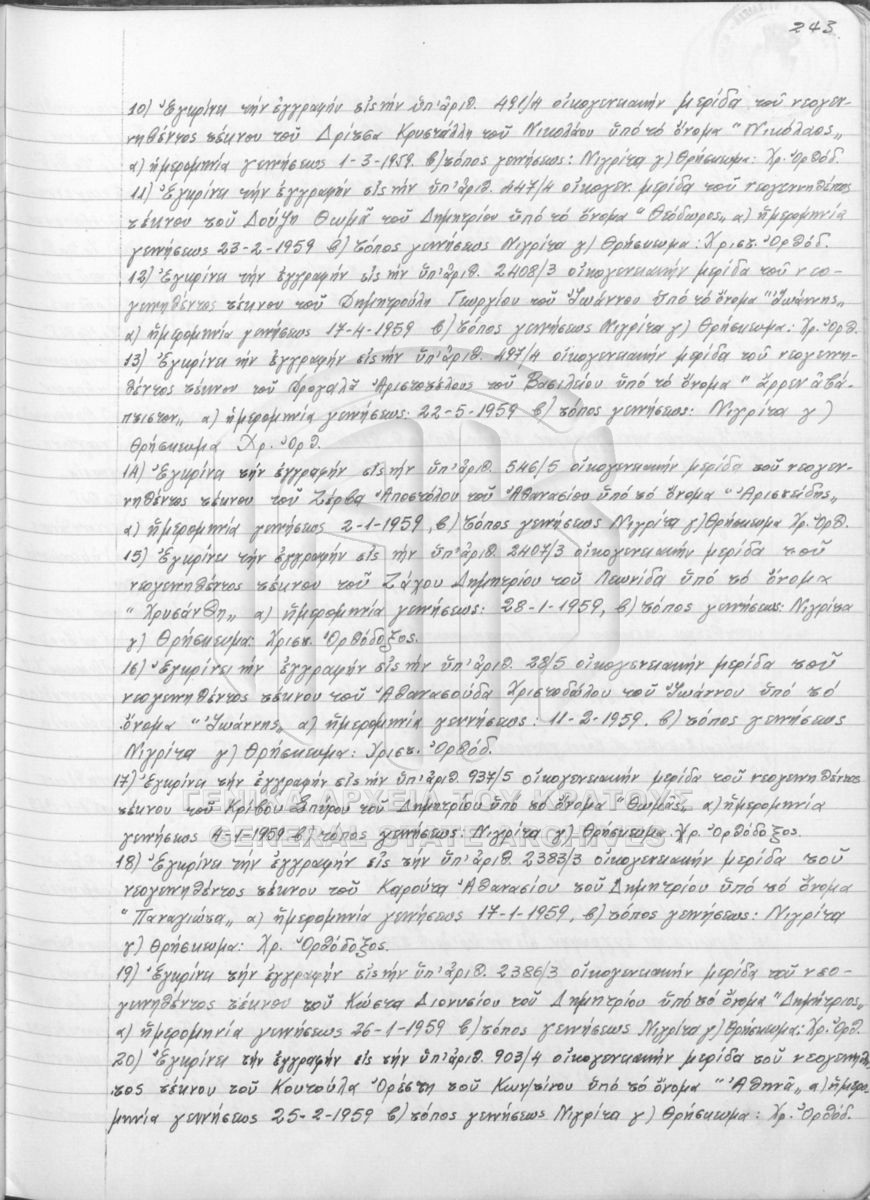 243
10) Ἐγκρίνει τήν ἐγγραφήν εἰς τήν ὑπ' ἀριθ. 491/4 οἰκογενειακήν μερίδα τοῦ νεογεν-
νηθέντος τέκνου τοῦ Δρίτσα Κρυστάλλη τοῦ Νικολάου ὑπό τό ὄνομα "Νικόλαος„
α) ἡμερομηνία γεννήσεως 1-3-1959. β) τόπος γεννήσεως: Νιγρίτα γ) Θρήσκευμα: Χρ. Ὀρθόδ.
11) Ἐγκρίνει τήν ἐγγραφήν εἰς τήν ὑπ' ἀριθ. 447/4 οἰκογεν. μερίδα τοῦ νεογεννηθέντος
τέκνου τοῦ Δούζη Θωμᾶ τοῦ Δημητρίου ὑπό τό ὄνομα "Θεόδωρος„ α) ἡμερομηνία
γεννήσεως 23-2-1959 β) τόπος γεννήσεως Νιγρίτα γ) Θρήσκευμα: Χριστ. Ὀρθόδ.
12) Ἐγκρίνει τήν ἐγγραφήν εἰς τήν ὑπ' ἀριθ. 2408/3 οἰκογενειακήν μερίδα τοῦ νεο-
γεννηθέντος τέκνου τοῦ Δημητρούλη Γεωργίου τοῦ Ἰωάννου ὑπό τό ὄνομα "Ἰωάννης„
α) ἡμερομηνία γεννήσεως 17-4-1959 β) τόπος γεννήσεως Νιγρίτα γ) Θρήσκευμα: Χρ. Ὀρθ.
13) Ἐγκρίνει τήν ἐγγραφήν εἰς τήν ὑπ' ἀριθ. 497/4 οἰκογενειακήν μερίδα τοῦ νεογεννη-
θέντος τέκνου τοῦ Δρογαλᾶ Ἀριστοτέλους τοῦ Βασιλείου ὑπό τό ὄνομα "ἄρρεν ἀβά-
πτιστον„ α) ἡμερομηνία γεννήσεως: 22-5-1959 β) τόπος γεννήσεως: Νιγρίτα γ)
Θρήσκευμα Χρ. Ὀρθ.
14) Ἐγκρίνει τήν ἐγγραφήν εἰς τήν ὑπ' ἀριθ. 546/5 οἰκογενειακήν μερίδα τοῦ νεογεν-
νηθέντος τέκνου τοῦ Ζέρβα Ἀποστόλου τοῦ Ἀθανασίου ὑπό τό ὄνομα "Ἀριστείδης„
α) ἡμερομηνία γεννήσεως 2-1-1959, β) τόπος γεννήσεως Νιγρίτα γ) Θρήσκευμα Χρ. Ὀρθ.
15) Ἐγκρίνει τήν ἐγγραφήν εἰς τήν ὑπ' ἀριθ. 2407/3 οἰκογενειακήν μερίδα τοῦ
νεογεννηθέντος τέκνου τοῦ Ζάχου Δημητρίου τοῦ Λεωνίδα ὑπό τό ὄνομα
"Χρυσάνθη„ α) ἡμερομηνία γεννήσεως: 28-1-1959, β) τόπος γεννήσεως: Νιγρίτα
γ) Θρήσκευμα: Χριστ. Ὀρθόδοξος.
16) Ἐγκρίνει τήν ἐγγραφήν εἰς τήν ὑπ' ἀριθ. 28/5 οἰκογενειακήν μερίδα τοῦ
νεογεννηθέντος τέκνου τοῦ Ἀθανασούδα Χριστοδούλου τοῦ Ἰωάννου ὑπό τό
ὄνομα "Ἰωάννης„ α) ἡμερομηνία γεννήσεως: 11-2-1959. β) τόπος γεννήσεως
Νιγρίτα γ) Θρήσκευμα: Χριστ. Ὀρθόδ.
17) Ἐγκρίνει τήν ἐγγραφήν εἰς τήν ὑπ' ἀριθ. 937/5 οἰκογενειακήν μερίδα τοῦ νεογεννηθέντος
τέκνου τοῦ Κρίβου Σπύρου τοῦ Δημητρίου ὑπό τό ὄνομα "Θωμᾶς„ α) ἡμερομηνία
γεννήσεως 4-1-1959 β) τόπος γεννήσεως: Νιγρίτα γ) Θρήσκευμα. Χρ. Ὀρθόδοξος.
ΓΕΝΙΚΑ ΑΡΧΕΙΑ ΤΟΥ ΚΡΑΤΟΥΣ
GENERAL STATE ARCHIVES
18) Ἐγκρίνει τήν ἐγγραφήν εἰς τήν ὑπ' ἀριθ. 2383/3 οἰκογενειακήν μερίδα τοῦ
νεογεννηθέντος τέκνου τοῦ Καρούτα Ἀθανασίου τοῦ Δημητρίου ὑπό τό ὄνομα
"Παναγιώτα„ α) ἡμερομηνία γεννήσεως 17-1-1959, β) τόπος γεννήσεως: Νιγρίτα
γ) Θρήσκευμα: Χρ. Ὀρθόδοξος.
19) Ἐγκρίνει τήν ἐγγραφήν εἰς τήν ὑπ' ἀριθ. 2386/3 οἰκογενειακήν μερίδα τοῦ νεο-
γεννηθέντος τέκνου τοῦ Κώστα Διονυσίου τοῦ Δημητρίου ὑπό τό ὄνομα "Δημήτριος„
α) ἡμερομηνία γεννήσεως 26-1-1959 β) τόπος γεννήσεως Νιγρίτα γ) Θρήσκευμα: Χρ. Ὀρθ.
20) Ἐγκρίνει τήν ἐγγραφήν εἰς τήν ὑπ' ἀριθ. 903/4 οἰκογενειακήν μερίδα τοῦ νεογεννηθέν-
τος τέκνου τοῦ Κουτούλα Ὀρέστη τοῦ Κων/τίνου ὑπό τό ὄνομα "Ἀθηνᾶ„ α) ἡμερο-
μηνία γεννήσεως 25-2-1959 β) τόπος γεννήσεως Νιγρίτα γ) Θρήσκευμα: Χρ. Ὀρθόδ.